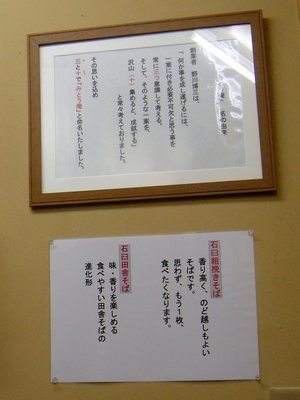 名の由来
創業者　野川博三は、
「何か事を成し遂げるには、
一案に付き必要不可欠と思う事を
常に三つ意識して考える。
そして、そのような一案を、
沢山（十）集めると、成就する」
と常々考えておりました。
その思いを込め
三と十で「みとう庵」と命名いたしました。
石臼粗挽きそば
香り高く、のど越しもよい
そばです。
思わず、もう１枚、
食べたくなります。
石臼田舎そば
味・香りを楽しめる
食べやすい田舎そばの
進化形